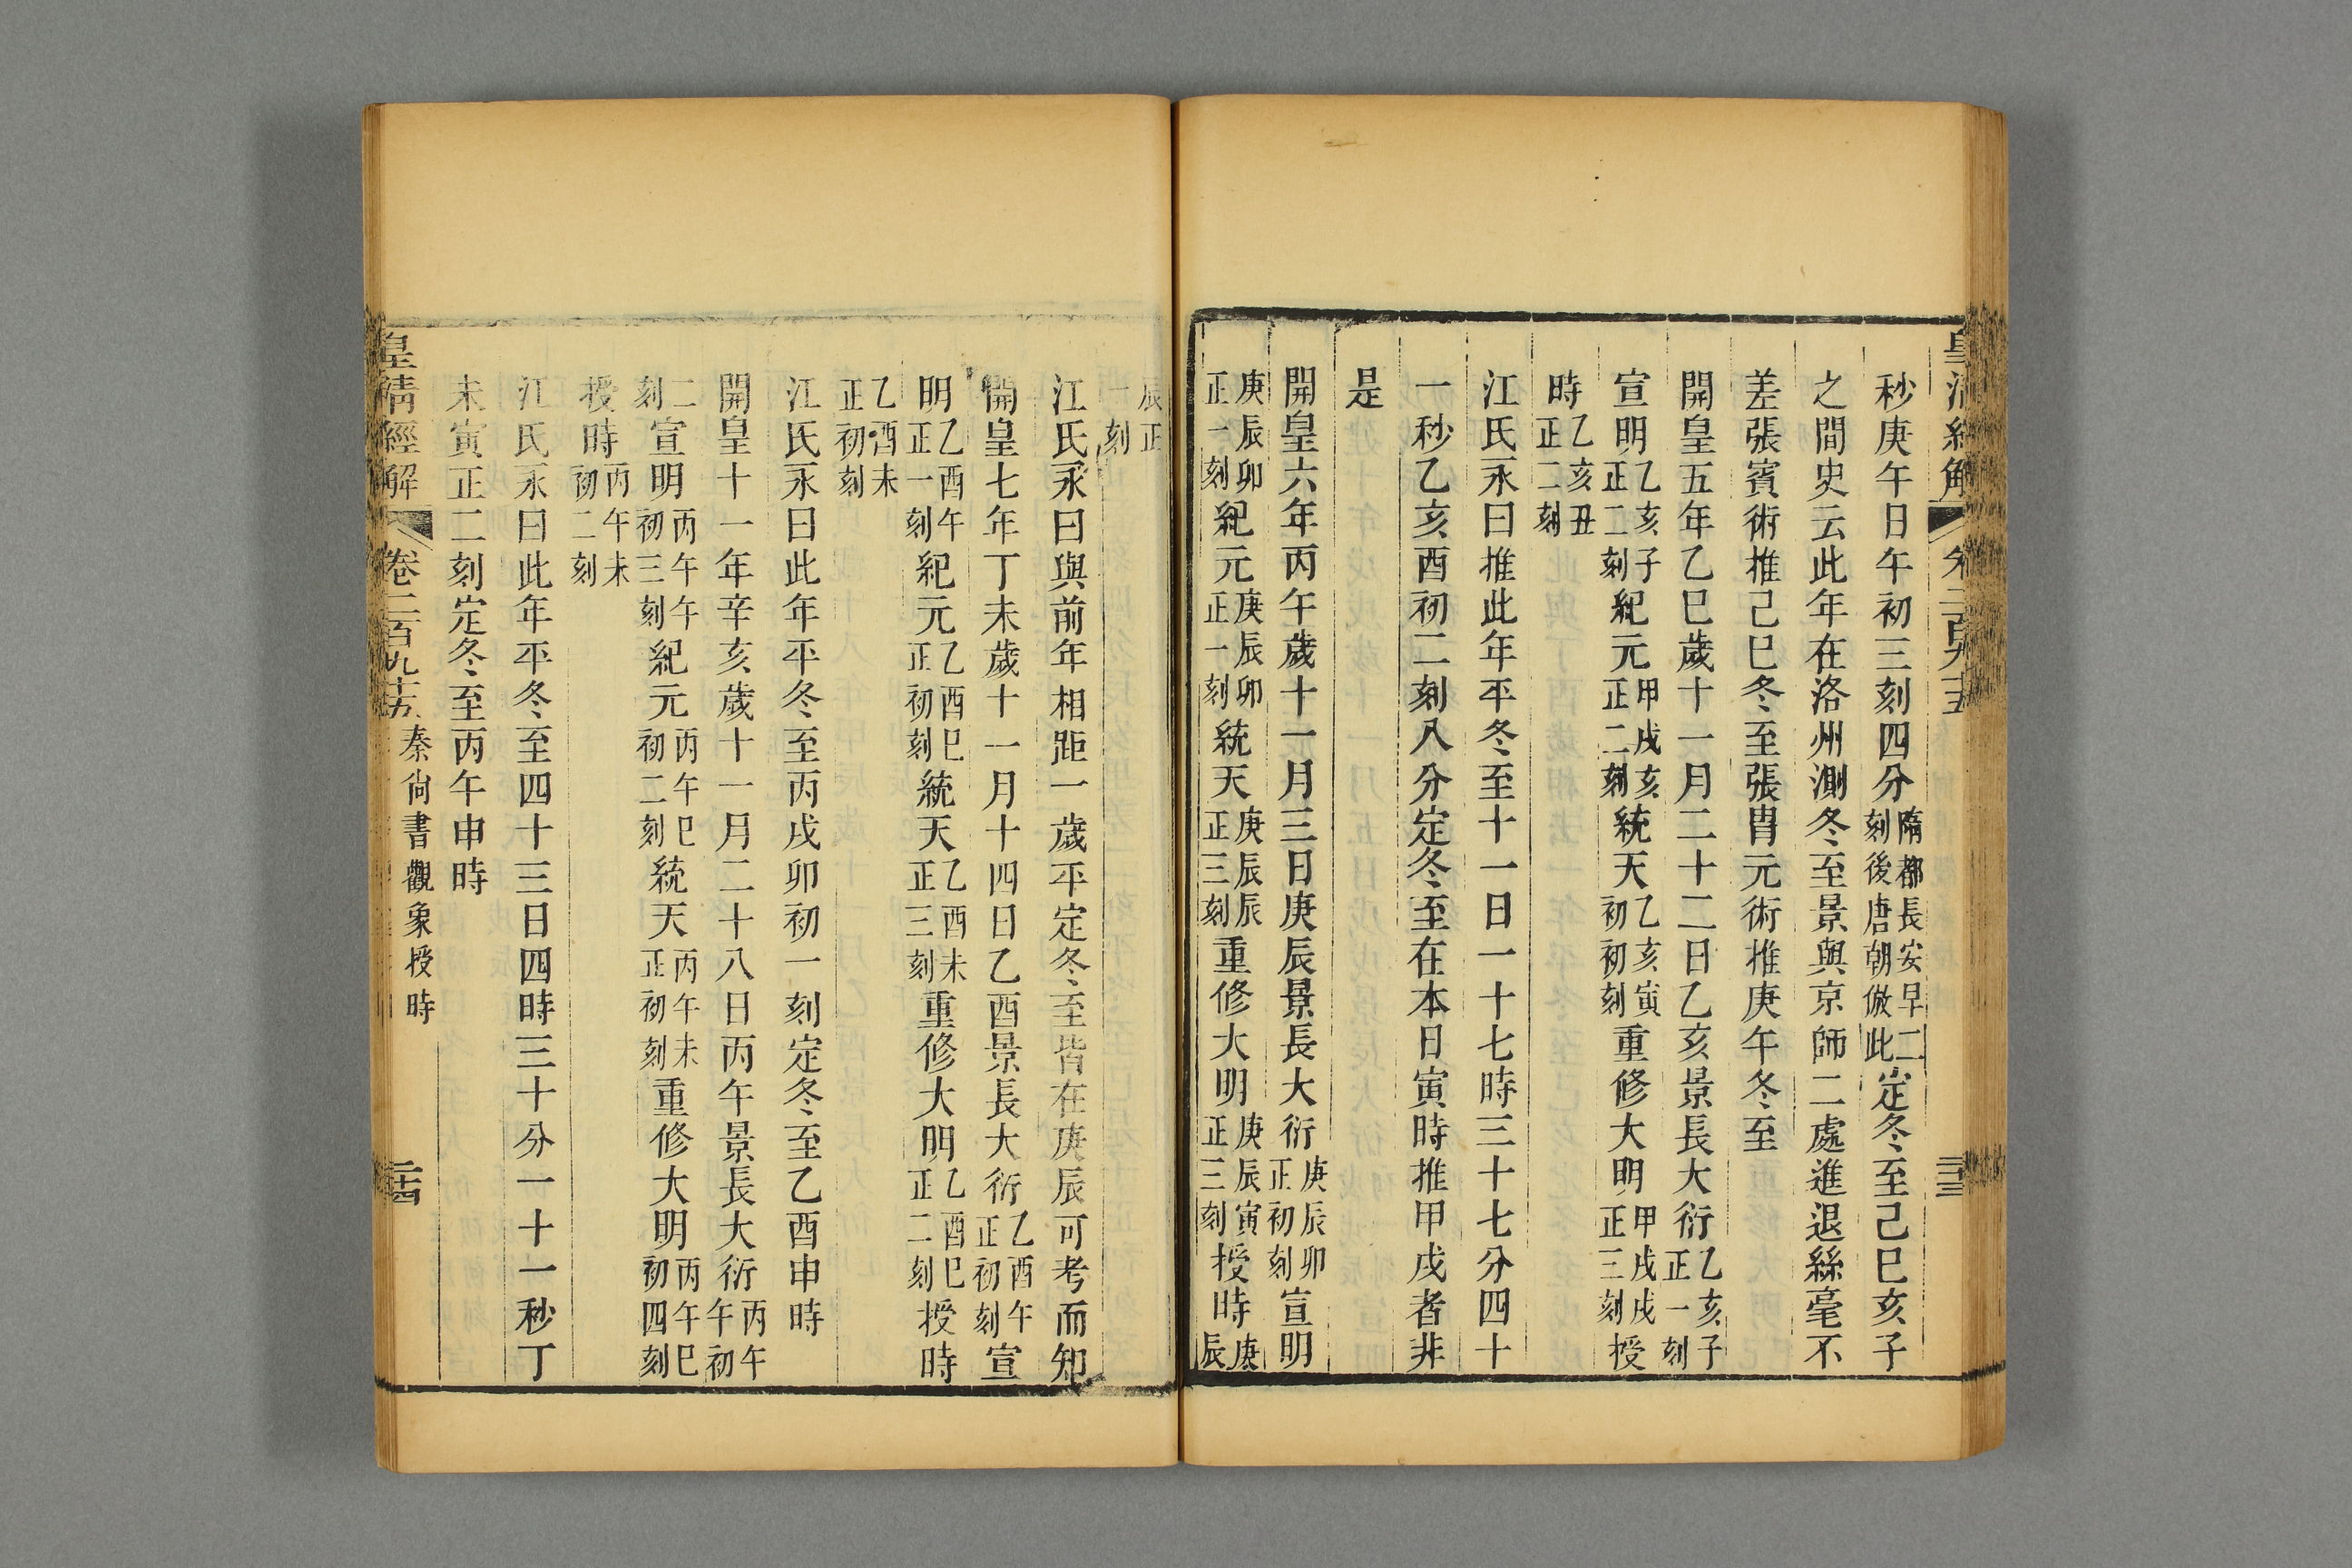 秒庚午日午初三刻四分隋都長安早二刻後唐朝倣此定冬至己巳亥子
之間史云此年在洛州測冬至景與京師二處進退絲毫不
差張賓術推己巳冬至張胄元術推庚午冬至
開皇五年乙巳歲十一月二十二日乙亥景長大衍乙亥子正一刻
宣明乙亥子正二刻紀元甲戌亥正二刻統天乙亥寅初初刻重修大明甲戌戌正三刻授
時乙亥丑正二刻
江氏永曰推此年平冬至十一日一十七時三十七分四十
一秒乙亥酉初二刻八分定冬至在本日寅時推甲戌者非
是
開皇六年丙午歲十一月三日庚辰景長大衍庚辰卯正初刻宣明
庚辰卯正一刻紀元庚辰卯正一刻統天庚辰辰正三刻重修大明庚辰寅正三刻授時庚辰
辰正一刻
江氏永曰與前年相距一歲平定冬至皆在庚辰可考而知
開皇七年丁未歲十一月十四日乙酉景長大衍乙酉午正初刻宣
明乙酉午正一刻紀元乙酉巳正初刻統天乙酉未正三刻重修大明乙酉巳正二刻授時
乙酉未正初刻
江氏永曰此年平冬至丙戌卯初一刻定冬至乙酉申時
開皇十一年辛亥歲十一月二十八日丙午景長大衍丙午午初
二刻宣明丙午午初三刻紀元丙午巳初二刻統天丙午未正初刻重修大明丙午巳初四刻
授時丙午未初二刻
江氏永曰此年平冬至四十三日四時三十分一十一秒丁
未寅正二刻定冬至丙午申時
皇清經解 卷二百九十五 秦尙書觀象授時 二十四